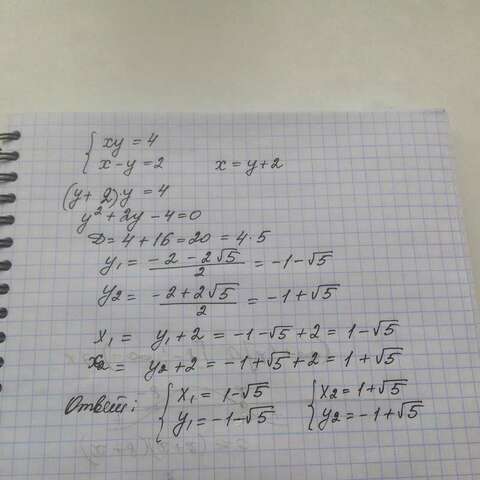 { xy = 4
x - y = 2 x = y + 2
(y + 2)y = 4
y² + 2y - 4 = 0
D = 4 + 16 = 20 = 4 · 5
y₁ = (-2 - 2√5)/2 = -1 - √5
y₂ = (-2 + 2√5)/2 = -1 + √5
x₁ = y₁ + 2 = -1 - √5 + 2 = 1 - √5
x₂ = y₂ + 2 = -1 + √5 + 2 = 1 + √5
Ответ: { x₁ = 1 - √5 { x₂ = 1 + √5
y₁ = -1 - √5 y₂ = -1 + √5